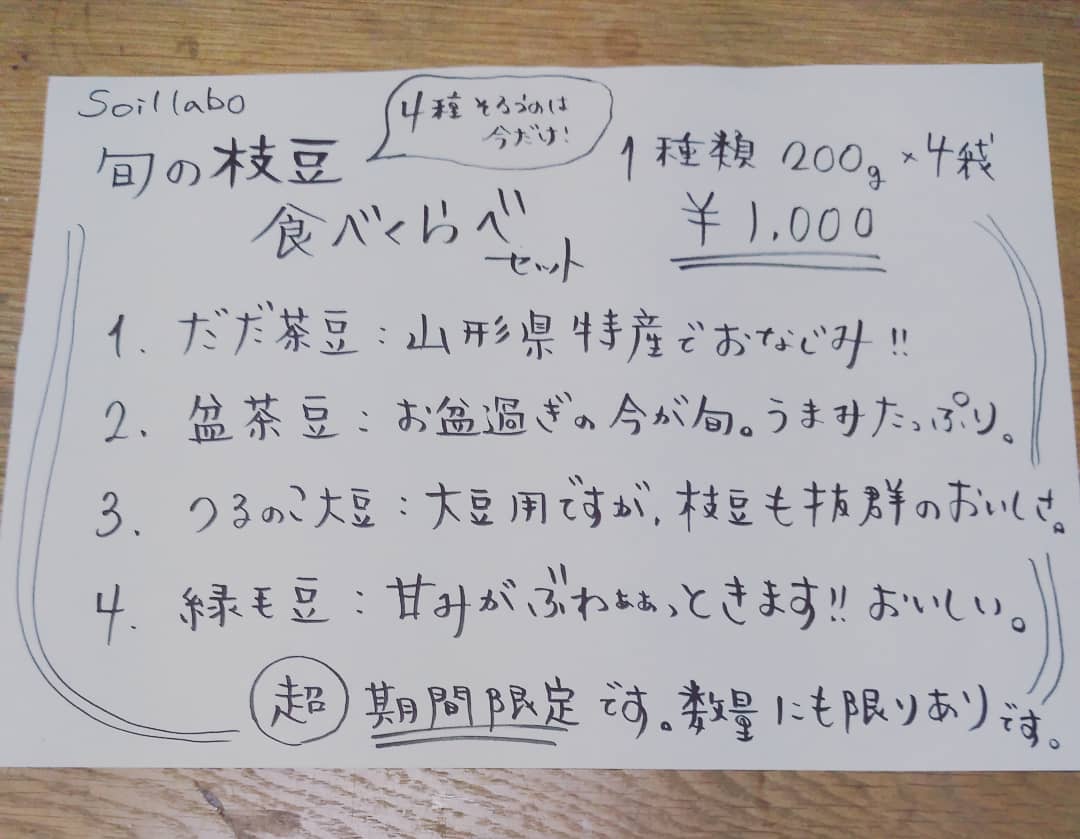 Soil labo
4種そろうのは
今だけ!
旬の枝豆
食べくらべ
セット
1種類 200g×4袋
¥1,000
1. だだ茶豆:山形県特産でおなじみ!!
2. 盆茶豆:お盆過ぎの今が旬。うまみたっぷり。
3. つるのこ大豆:大豆用ですが、枝豆も抜群のおいしさ。
4. 緑毛豆:甘みがぶわぁぁっときます!!おいしい。
超 期間限定です。数量にも限りありです。